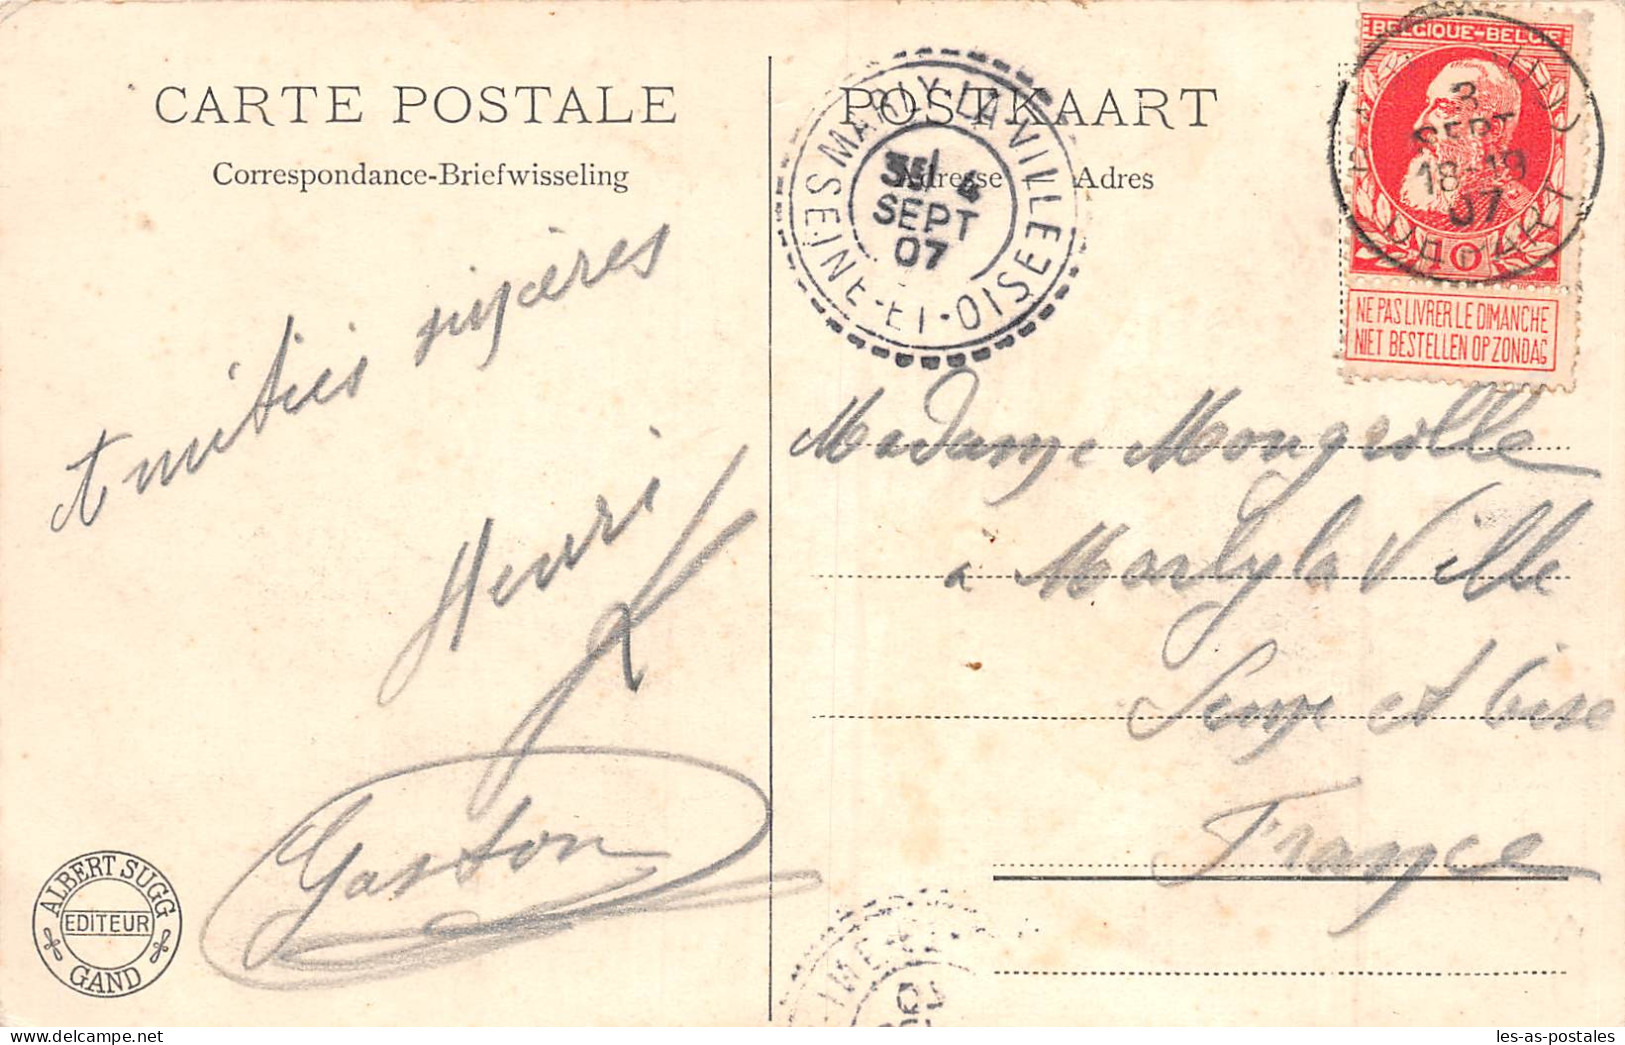 CARTE POSTALE
Correspondance-Briefwisseling
POSTKAART
Adresse Adres
MARLY-LA-VILLE
SEINE-ET-OISE
4
SEPT
07
BELGIQUE-BELGIË
3
SEPT
18-19
07
DEPART
NE PAS LIVRER LE DIMANCHE
NIET BESTELLEN OP ZONDAG
Amitiés sincères
Henri
Gaston
Madame Mongrolle
a Marly la Ville
Seine et Oise
France
ALBERT SUGG
EDITEUR
GAND
les-as-postales